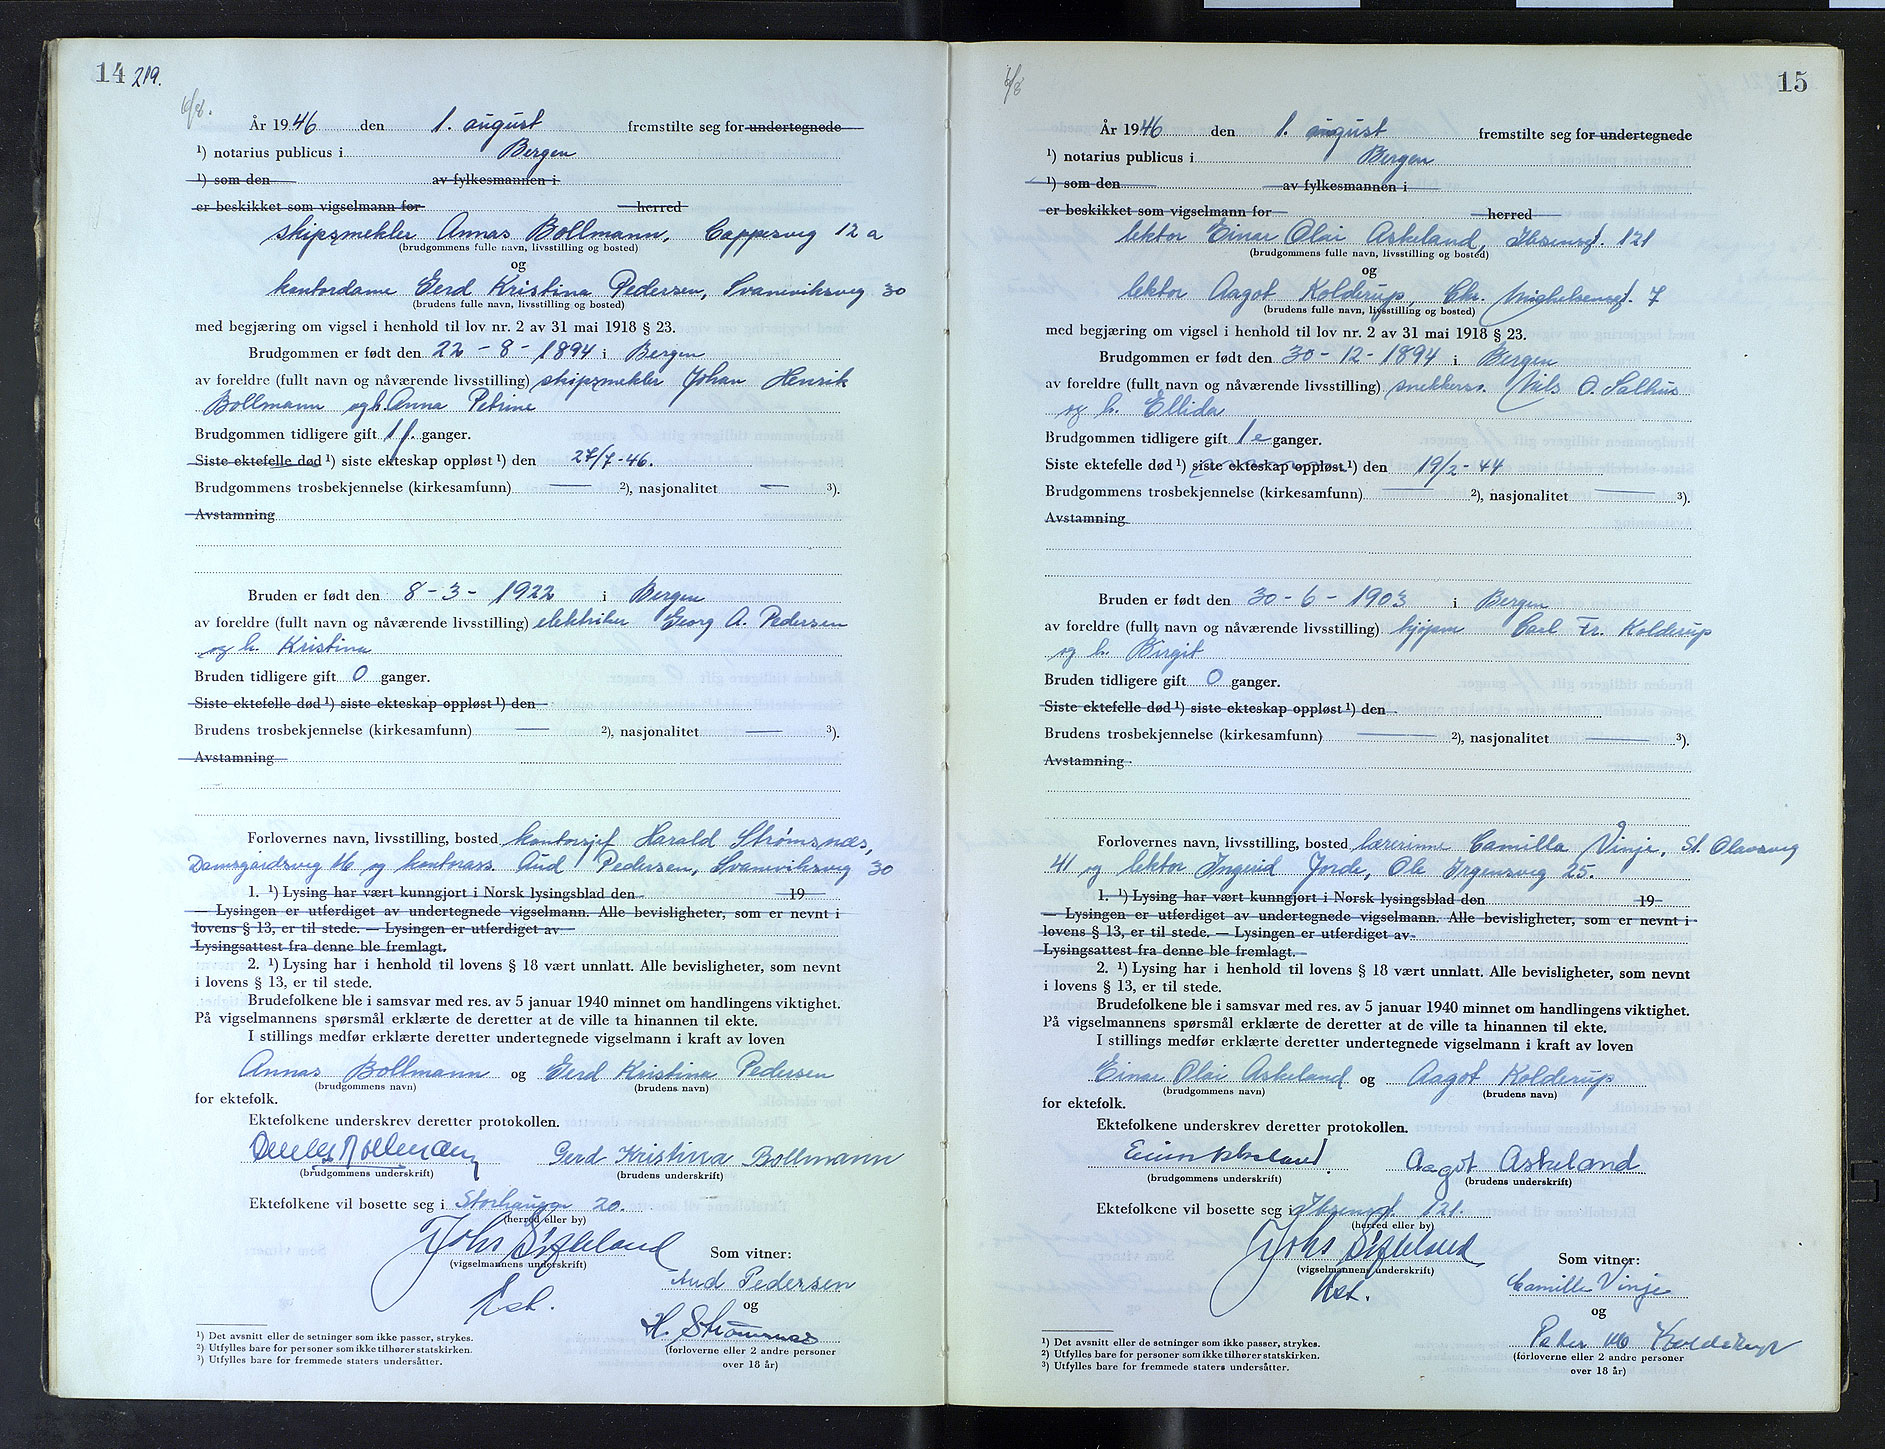 14 219.
6/8.
År 1946 den 1. august fremstilte seg for undertegnede
¹) notarius publicus i Bergen
¹) som den av fylkesmannen i
er beskikket som vigselmann for herred
skipsmekler Annas Bollmann, Cappesveg 12 a
(brudgommens fulle navn, livsstilling og bosted)
og
kontordame Gerd Kristina Pedersen, Svaneviksveg 30
(brudens fulle navn, livsstilling og bosted)
med begjæring om vigsel i henhold til lov nr. 2 av 31 mai 1918 § 23.
Brudgommen er født den 22 - 8 - 1894 i Bergen
av foreldre (fullt navn og nåværende livsstilling) skipsmekler Johan Henrik
Bollmann og h. Anna Petrine
Brudgommen tidligere gift 1 f. ganger.
Siste ektefelle død ¹) siste ekteskap oppløst ¹) den 27/7-46.
Brudgommens trosbekjennelse (kirkesamfunn) — ²), nasjonalitet — ³).
Avstamning
Bruden er født den 8 - 3 - 1922 i Bergen
av foreldre (fullt navn og nåværende livsstilling) elektriker Georg A. Pedersen
og h. Kristina
Bruden tidligere gift 0 ganger.
Siste ektefelle død ¹) siste ekteskap oppløst ¹) den
Brudens trosbekjennelse (kirkesamfunn) — ²), nasjonalitet — ³).
Avstamning
Forlovernes navn, livsstilling, bosted kontorsjef Harald Strømsnes,
Damsgårdsveg 16 og kontorass. Aud Pedersen, Svaneviksveg 30
1. ¹) Lysing har vært kunngjort i Norsk lysingsblad den 19
— Lysingen er utferdiget av undertegnede vigselmann. Alle bevisligheter, som er nevnt i
lovens § 13, er til stede. — Lysingen er utferdiget av
Lysingsattest fra denne ble fremlagt.
2. ¹) Lysing har i henhold til lovens § 18 vært unnlatt. Alle bevisligheter, som nevnt
i lovens § 13, er til stede.
Brudefolkene ble i samsvar med res. av 5 januar 1940 minnet om handlingens viktighet.
På vigselmannens spørsmål erklærte de deretter at de ville ta hinannen til ekte.
I stillings medfør erklærte deretter undertegnede vigselmann i kraft av loven
Annas Bollmann og Gerd Kristina Pedersen
(brudgommens navn) (brudens navn)
for ektefolk.
Ektefolkene underskrev deretter protokollen.
Bollmann Gerd Kristina Bollmann
(brudgommens underskrift) (brudens underskrift)
Ektefolkene vil bosette seg i Storhaugen 20.
(herred eller by)
Johs
(vigselmannens underskrift)
Som vitner:
Aud Pedersen
og
H. Strømsnes
(forloverne eller 2 andre personer
over 18 år)
¹) Det avsnitt eller de setninger som ikke passer, strykes.
²) Utfylles bare for personer som ikke tilhører statskirken.
³) Utfylles bare for fremmede staters undersåtter.
15
6/8
År 1946 den 1. august fremstilte seg for undertegnede
¹) notarius publicus i Bergen
¹) som den av fylkesmannen i
er beskikket som vigselmann for herred
lektor Einar Olai Askeland, Ibsensgt. 121
(brudgommens fulle navn, livsstilling og bosted)
og
lektor Aagot Kolderup, Chr. Michelsensgt. 7
(brudens fulle navn, livsstilling og bosted)
med begjæring om vigsel i henhold til lov nr. 2 av 31 mai 1918 § 23.
Brudgommen er født den 30 - 12 - 1894 i Bergen
av foreldre (fullt navn og nåværende livsstilling) snekkerm. Nils O. Salhus
og h. Ellida
Brudgommen tidligere gift 1 e ganger.
Siste ektefelle død ¹) siste ekteskap oppløst ¹) den 19/2-44
Brudgommens trosbekjennelse (kirkesamfunn) — ²), nasjonalitet — ³).
Avstamning
Bruden er født den 30 - 6 - 1903 i Bergen
av foreldre (fullt navn og nåværende livsstilling) Carl Fr. Kolderup
og h. Birgit
Bruden tidligere gift 0 ganger.
Siste ektefelle død ¹) siste ekteskap oppløst ¹) den
Brudens trosbekjennelse (kirkesamfunn) — ²), nasjonalitet — ³).
Avstamning
Forlovernes navn, livsstilling, bosted lærerinne Camilla Vinje, St. Olavsveg
41 og lektor Ingerid Jorde, Ole Irgensveg 25.
1. ¹) Lysing har vært kunngjort i Norsk lysingsblad den 19
— Lysingen er utferdiget av undertegnede vigselmann. Alle bevisligheter, som er nevnt i
lovens § 13, er til stede. — Lysingen er utferdiget av
Lysingsattest fra denne ble fremlagt.
2. ¹) Lysing har i henhold til lovens § 18 vært unnlatt. Alle bevisligheter, som nevnt
i lovens § 13, er til stede.
Brudefolkene ble i samsvar med res. av 5 januar 1940 minnet om handlingens viktighet.
På vigselmannens spørsmål erklærte de deretter at de ville ta hinannen til ekte.
I stillings medfør erklærte deretter undertegnede vigselmann i kraft av loven
Einar Olai Askeland og Aagot Kolderup
(brudgommens navn) (brudens navn)
for ektefolk.
Ektefolkene underskrev deretter protokollen.
Einar Askeland. Aagot Askeland
(brudgommens underskrift) (brudens underskrift)
Ektefolkene vil bosette seg i Ibsensgt. 121.
(herred eller by)
Johs
(vigselmannens underskrift)
Som vitner:
Camilla Vinje
og
Kolderup
(forloverne eller 2 andre personer
over 18 år)
¹) Det avsnitt eller de setninger som ikke passer, strykes.
²) Utfylles bare for personer som ikke tilhører statskirken.
³) Utfylles bare for fremmede staters undersåtter.